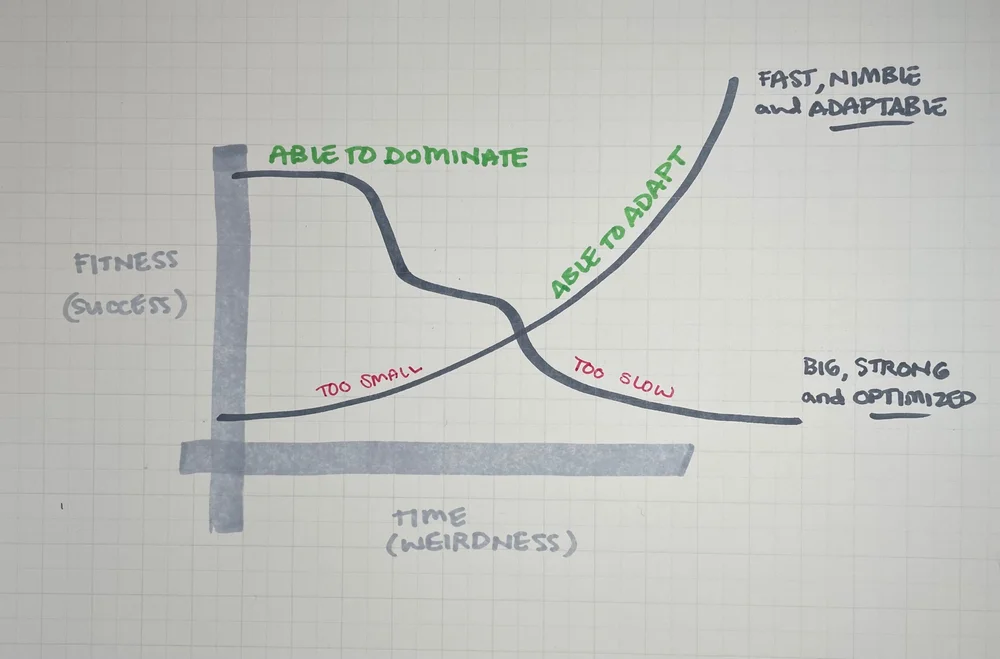 FAST, NIMBLE
and ADAPTABLE
ABLE TO DOMINATE
ABLE TO ADAPT
FITNESS
(SUCCESS)
TOO SMALL
TOO SLOW
BIG, STRONG
and OPTIMIZED
TIME
(WEIRDNESS)